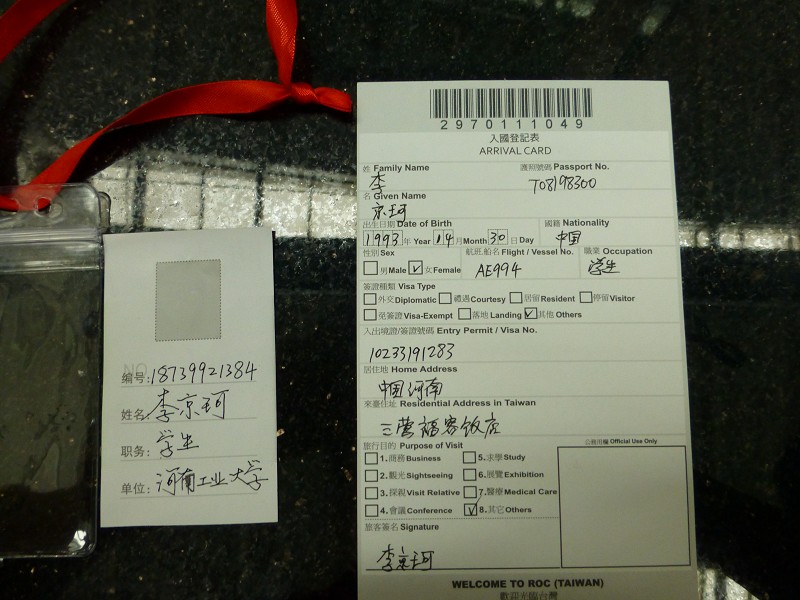 编号:18739921384
姓名:李京珂
职务:学生
单位:河南工业大学
2970111049
入國登記表
ARRIVAL CARD
姓 Family Name 護照號碼 Passport No.
李 T08198300
名 Given Name
京珂
出生日期 Date of Birth 國籍 Nationality
1993年 Year 04月 Month 30日 Day 中国
性別 Sex 航班.船名 Flight / Vessel No. 職業 Occupation
男 Male 女 Female AE994 学生
簽證種類 Visa Type
外交 Diplomatic 禮遇 Courtesy 居留 Resident 停留 Visitor
免簽證 Visa-Exempt 落地 Landing 其他 Others
入出境證/簽證號碼 Entry Permit / Visa No.
10233191283
居住地 Home Address
中国河南
來臺住址 Residential Address in Taiwan
三鶯福容饭店
旅行目的 Purpose of Visit 公務用欄 Official Use Only
1.商務 Business 5.求學 Study
2.觀光 Sightseeing 6.展覽 Exhibition
3.探親 Visit Relative 7.醫療 Medical Care
4.會議 Conference 8.其它 Others
旅客簽名 Signature
李京珂
WELCOME TO ROC (TAIWAN)
歡迎光臨台灣